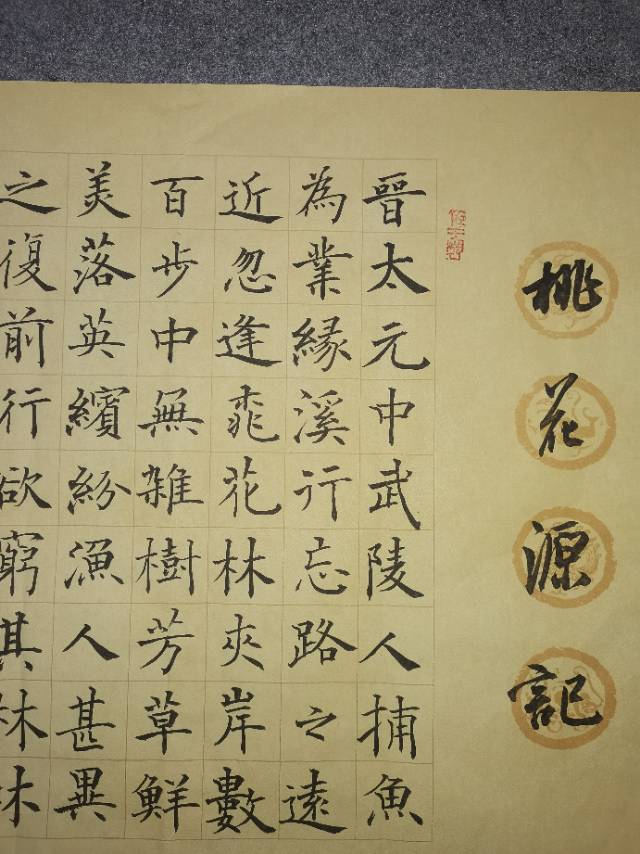 桃花源記
晉太元中武陵人捕魚
為業緣溪行忘路之遠
近忽逢桃花林夾岸數
百步中無雜樹芳草鮮
美落英繽紛漁人甚異
之復前行欲窮其林林